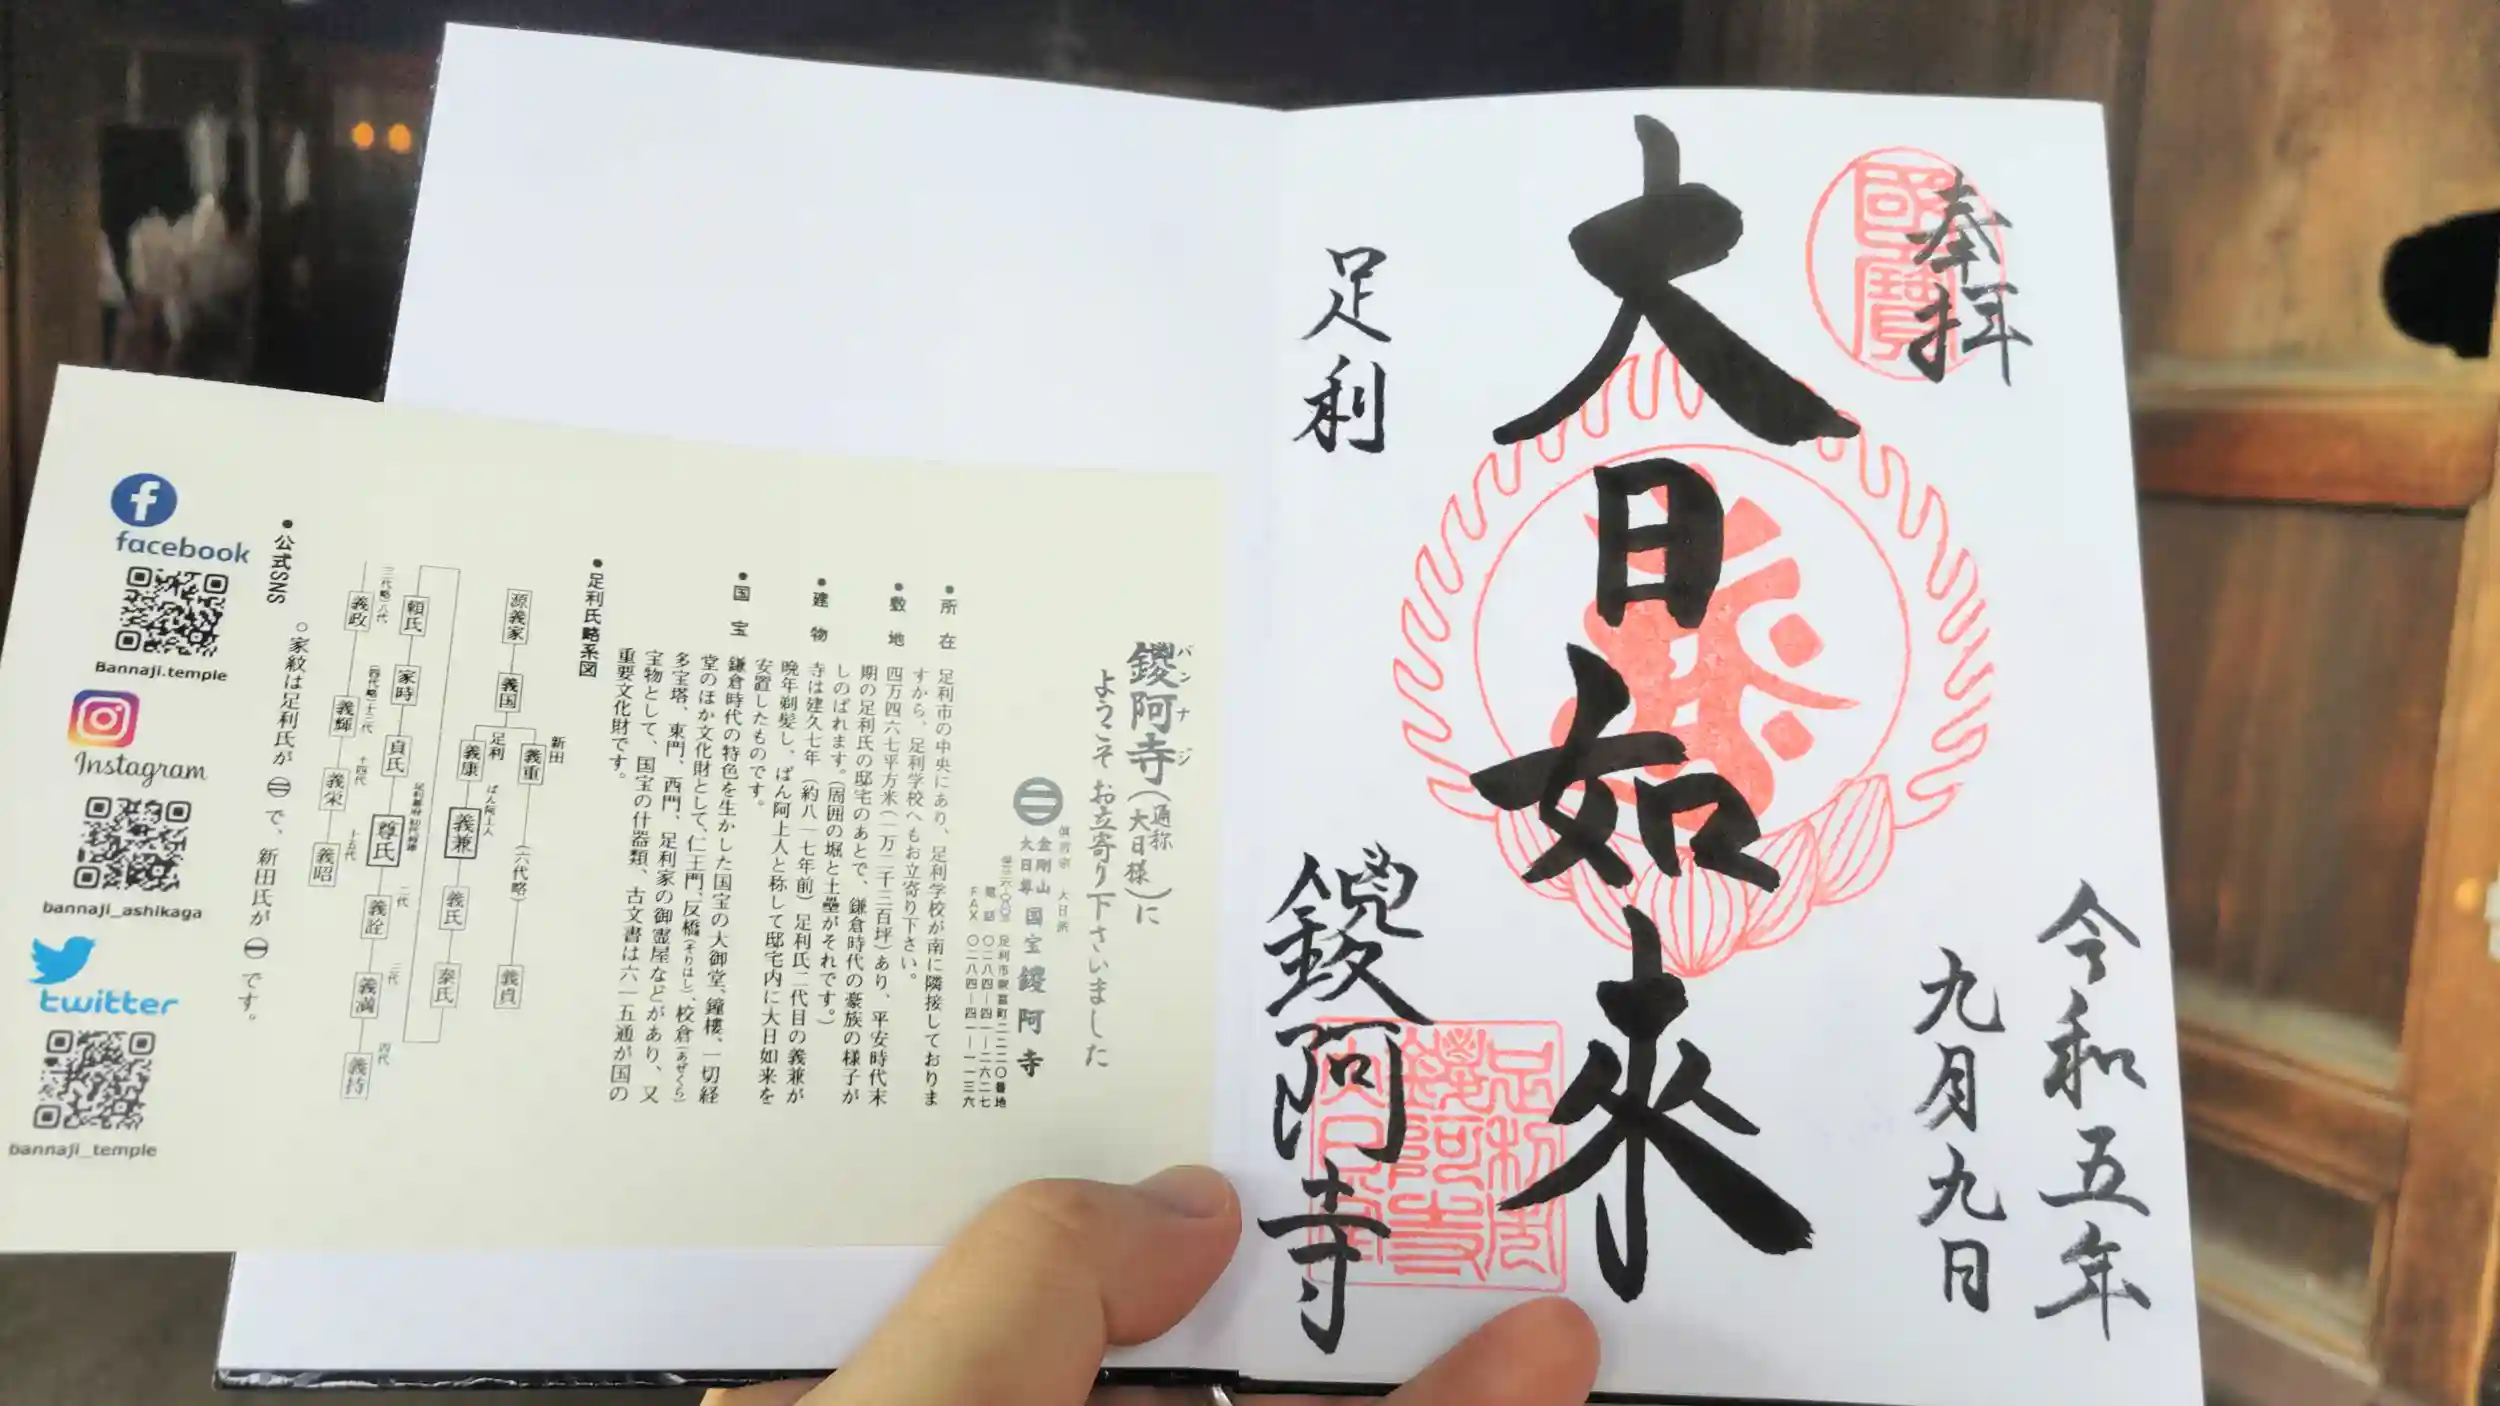 奉拝
國寶
令和五年
九月九日
大日如来
足利
鑁阿寺
鑁阿寺(通称大日様)に
バンナジ
ようこそ お立寄り下さいました
真言宗 大日派
金剛山
大日尊
国宝 鑁阿寺
足利市家富町二二二〇番地
電話 〇二八四―四一―二六二七
FAX 〇二八四―四一―一一三六
●所在 足利市の中央にあり、足利学校が南に隣接しておりま
すから、足利学校へもお立寄り下さい。
●敷地 四万四六七平方米(一万二千三百坪)あり、平安時代末
期の足利氏の邸宅のあとで、鎌倉時代の豪族の様子が
しのばれます。(周囲の堀と土塁がそれです。)
●建物 寺は建久七年(約八一七年前)足利氏二代目の義兼が
晩年剃髪し、ばん阿上人と称して邸宅内に大日如来を
安置したものです。
●国宝 鎌倉時代の特色を生かした国宝の大御堂、鐘楼、一切経
堂のほか文化財として、仁王門、反橋(そりはし)、校倉(あぜくら)
多宝塔、東門、西門、足利家の御霊屋などがあり、又
宝物として、国宝の什器類、古文書は六一五通が国の
重要文化財です。
●足利氏略系図
源義家
義国
新田
義重
(六代略)
義貞
足利
義康
ばん阿上人
義兼
義氏
泰氏
頼氏
家時
貞氏
足利幕府初代将軍
尊氏
二代
義詮
三代
義満
四代
義持
(三代略)八代
義政
(四代略)十三代
義輝
十四代
義栄
十五代
義昭
○家紋は足利氏が で、新田氏が です。
●公式SNS
facebook
Bannaji.temple
Instagram
bannaji_ashikaga
twitter
bannaji_temple